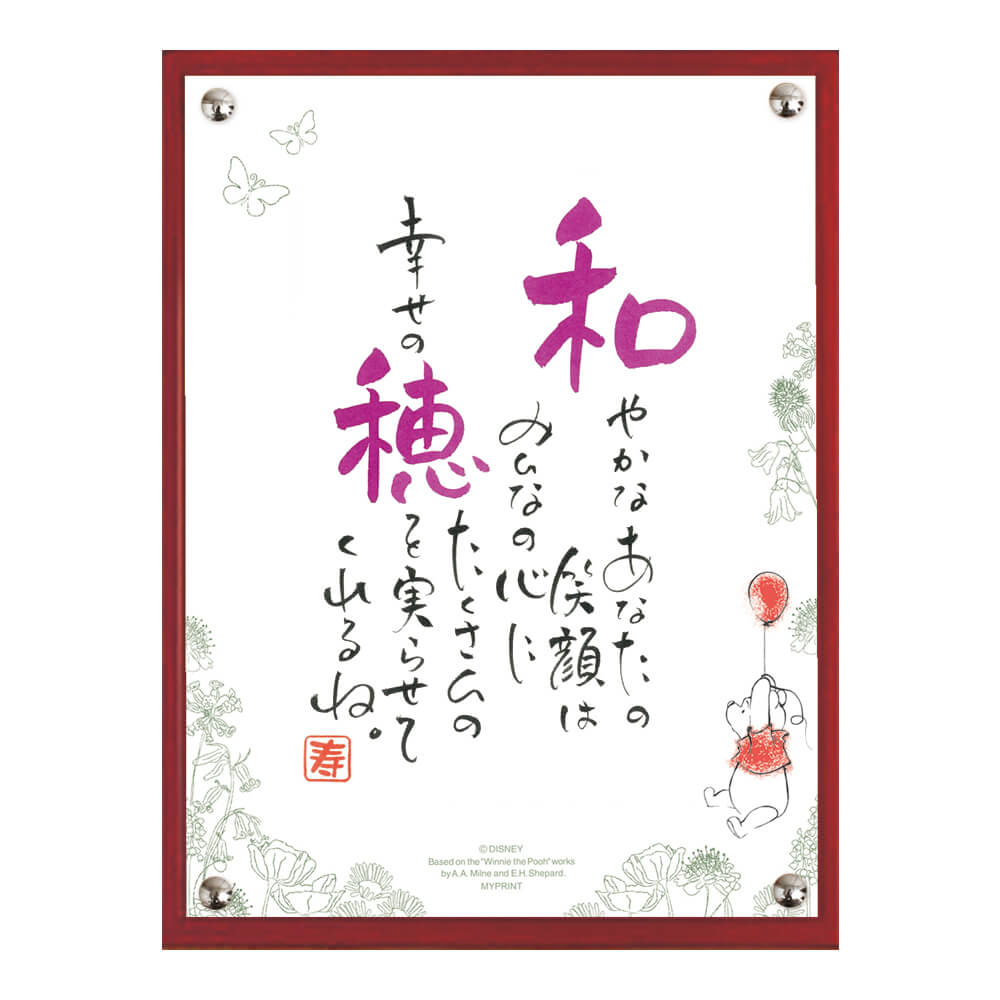 和やかなあなたの
笑顔は
みんなの心に
たくさんの
幸せの穂を実らせて
くれるね。
寿
© DISNEY
Based on the "Winnie the Pooh" works
by A.A. Milne and E.H. Shepard.
MYPRINT